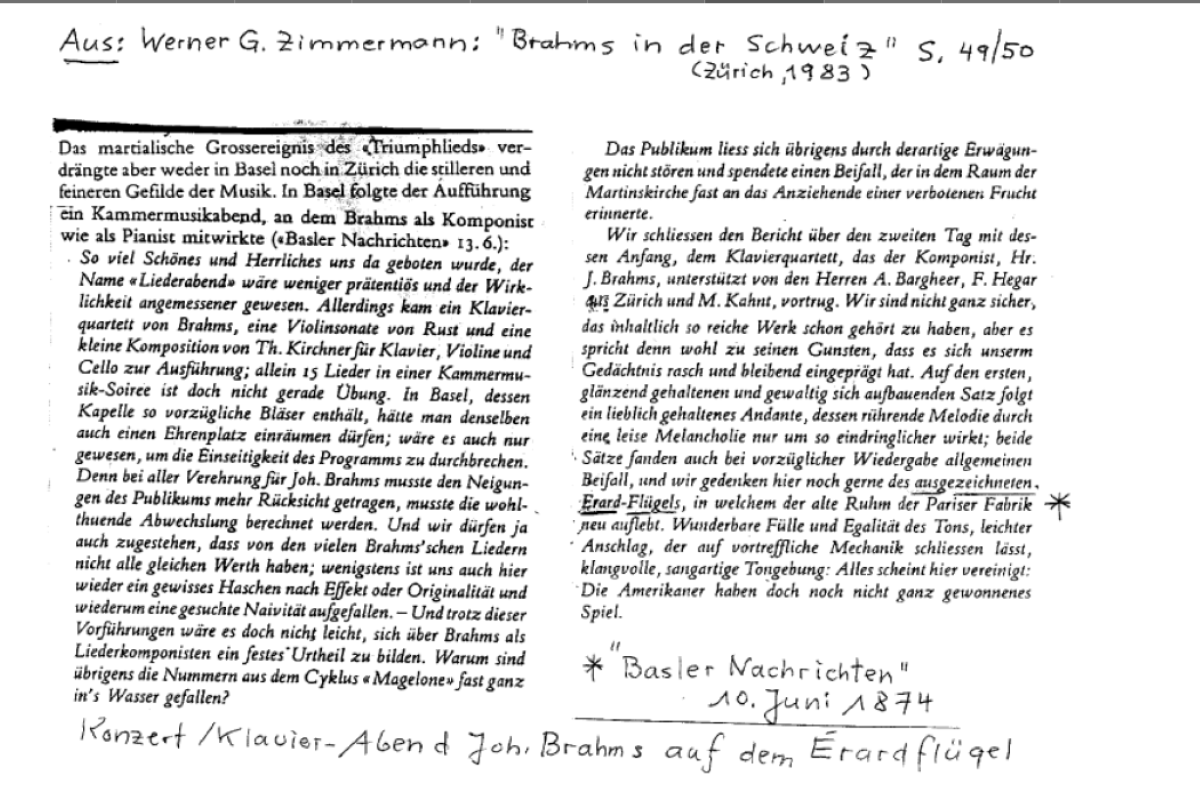 Aus: Werner G. Zimmermann: "Brahms in der Schweiz" S. 49/50
(Zürich, 1983)
Das martialische Grossereignis des «Triumphlieds» ver-
drängte aber weder in Basel noch in Zürich die stilleren und
feineren Gefilde der Musik. In Basel folgte der Aufführung
ein Kammermusikabend, an dem Brahms als Komponist
wie als Pianist mitwirkte («Basler Nachrichten» 13.6.):
So viel Schönes und Herrliches uns da geboten wurde, der
Name «Liederabend» wäre weniger prätentiös und der Wirk-
lichkeit angemessener gewesen. Allerdings kam ein Klavier-
quartett von Brahms, eine Violinsonate von Rust und eine
kleine Komposition von Th. Kirchner für Klavier, Violine und
Cello zur Ausführung; allein 15 Lieder in einer Kammermu-
sik-Soiree ist doch nicht gerade Übung. In Basel, dessen
Kapelle so vorzügliche Bläser enthält, hätte man denselben
auch einen Ehrenplatz einräumen dürfen; wäre es auch nur
gewesen, um die Einseitigkeit des Programms zu durchbrechen.
Denn bei aller Verehrung für Joh. Brahms musste den Neigun-
gen des Publikums mehr Rücksicht getragen, musste die wohl-
thuende Abwechslung berechnet werden. Und wir dürfen ja
auch zugestehen, dass von den vielen Brahms'schen Liedern
nicht alle gleichen Werth haben; wenigstens ist uns auch hier
wieder ein gewisses Haschen nach Effekt oder Originalität und
wiederum eine gesuchte Naivität aufgefallen. – Und trotz dieser
Vorführungen wäre es doch nicht leicht, sich über Brahms als
Liederkomponisten ein festes Urtheil zu bilden. Warum sind
übrigens die Nummern aus dem Cyklus «Magelone» fast ganz
in's Wasser gefallen?
Das Publikum liess sich übrigens durch derartige Erwägun-
gen nicht stören und spendete einen Beifall, der in dem Raum der
Martinskirche fast an das Anziehende einer verbotenen Frucht
erinnerte.
Wir schliessen den Bericht über den zweiten Tag mit des-
sen Anfang, dem Klavierquartett, das der Komponist, Hr.
J. Brahms, unterstützt von den Herren A. Bargheer, F. Hegar
aus Zürich und M. Kahnt, vortrug. Wir sind nicht ganz sicher,
das inhaltlich so reiche Werk schon gehört zu haben, aber es
spricht denn wohl zu seinen Gunsten, dass es sich unserm
Gedächtnis rasch und bleibend eingeprägt hat. Auf den ersten,
glänzend gehaltenen und gewaltig sich aufbauenden Satz folgt
ein lieblich gehaltenes Andante, dessen rührende Melodie durch
eine leise Melancholie nur um so eindringlicher wirkt; beide
Sätze fanden auch bei vorzüglicher Wiedergabe allgemeinen
Beifall, und wir gedenken hier noch gerne des ausgezeichneten
Erard-Flügels, in welchem der alte Ruhm der Pariser Fabrik *
neu auflebt. Wunderbare Fülle und Egalität des Tons, leichter
Anschlag, der auf vortreffliche Mechanik schliessen lässt,
klangvolle, sangartige Tongebung: Alles scheint hier vereinigt:
Die Amerikaner haben doch noch nicht ganz gewonnenes
Spiel.
* "Basler Nachrichten"
10. Juni 1874
Konzert/Klavier-Abend Joh. Brahms auf dem Érardflügel